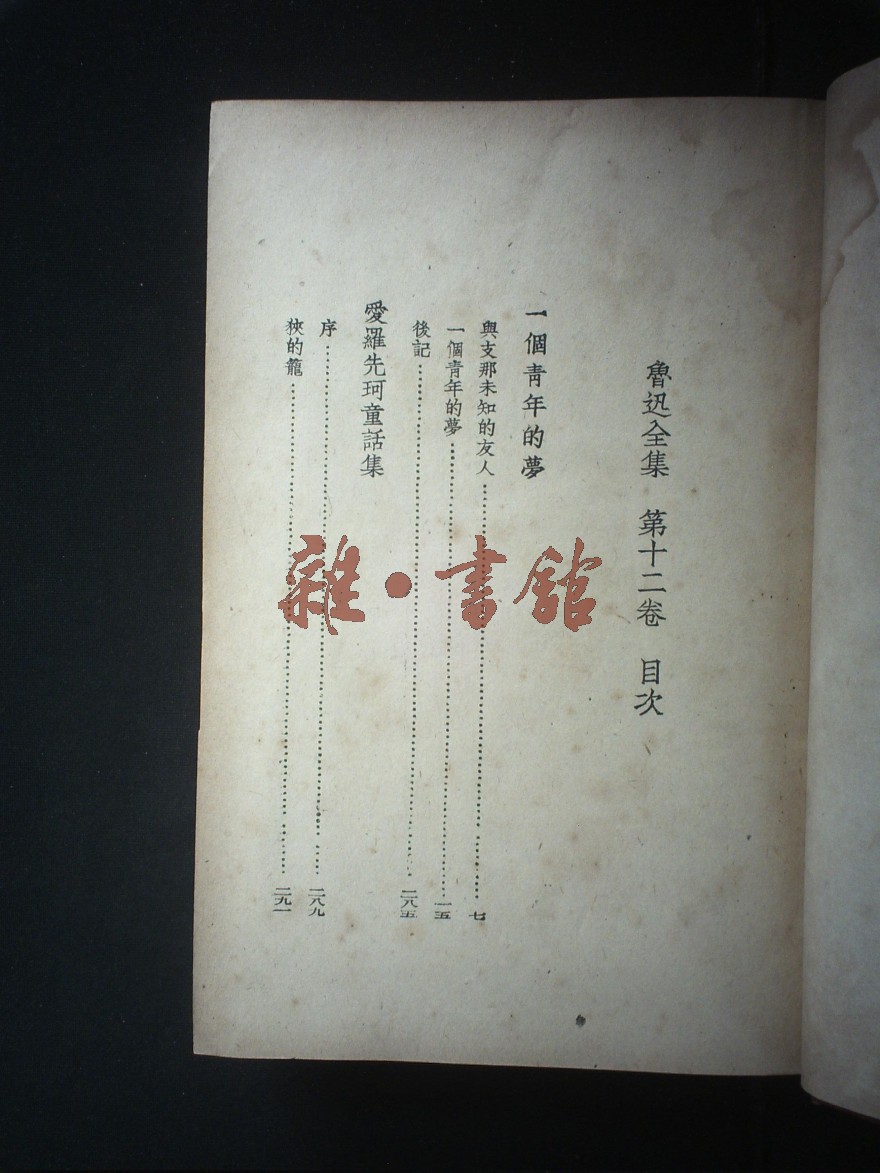 魯迅全集　第十二卷　目次
一個靑年的夢
與支那未知的友人……七
一個靑年的夢……一五
後記……二八五
愛羅先珂童話集
序……二八九
狹的籠……二九一
雜·書館